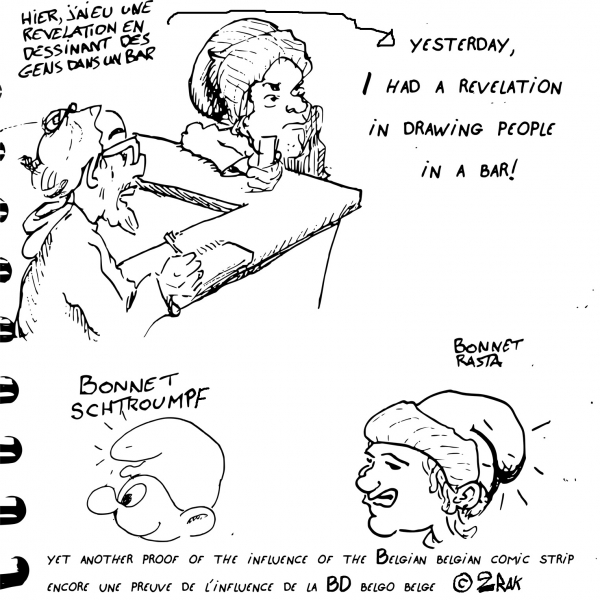 HIER, J'AI EU UNE
REVELATION EN
DESSINANT DES
GENS DANS UN BAR
YESTERDAY,
I HAD A REVELATION
IN DRAWING PEOPLE
IN A BAR!
BONNET
SCHTROUMPF
BONNET
RASTA
YET ANOTHER PROOF OF THE INFLUENCE OF THE BELGIAN BELGIAN COMIC STRIP
ENCORE UNE PREUVE DE L'INFLUENCE DE LA BD BELGO BELGE © 2RAK